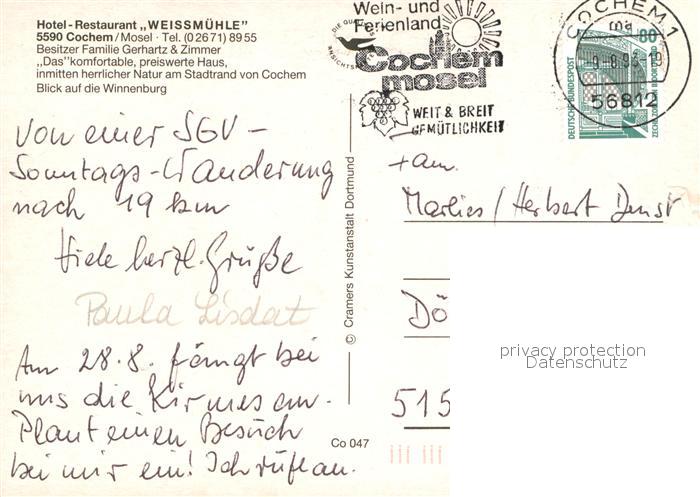 Hotel-Restaurant „WEISSMÜHLE"
5590 Cochem/Mosel · Tel. (0 26 71) 89 55
Besitzer Familie Gerhartz & Zimmer
„Das" komfortable, preiswerte Haus,
inmitten herrlicher Natur am Stadtrand von Cochem
Blick auf die Winnenburg
Wein- und
Ferienland
Cochem
mosel
WEIT & BREIT
GEMÜTLICHKEIT
COCHEM 1
ma
-9.-8.93-19
56812
80
DEUTSCHE BUNDESPOST
ZECHE ZOLLERN II DORTMUND
Von einer SGV-
Sonntags-Wanderung
nach 19 km
Viele herzl. Grüße
Paula Lisdat
Am 28.8. fängt bei
uns die Kirmes an.
Plant einen Besuch
bei mir ein! Ich rufe an.
© Cramers Kunstanstalt Dortmund
Co 047
+ am.
Marlies / Herbert
Dö
515
privacy protection
Datenschutz